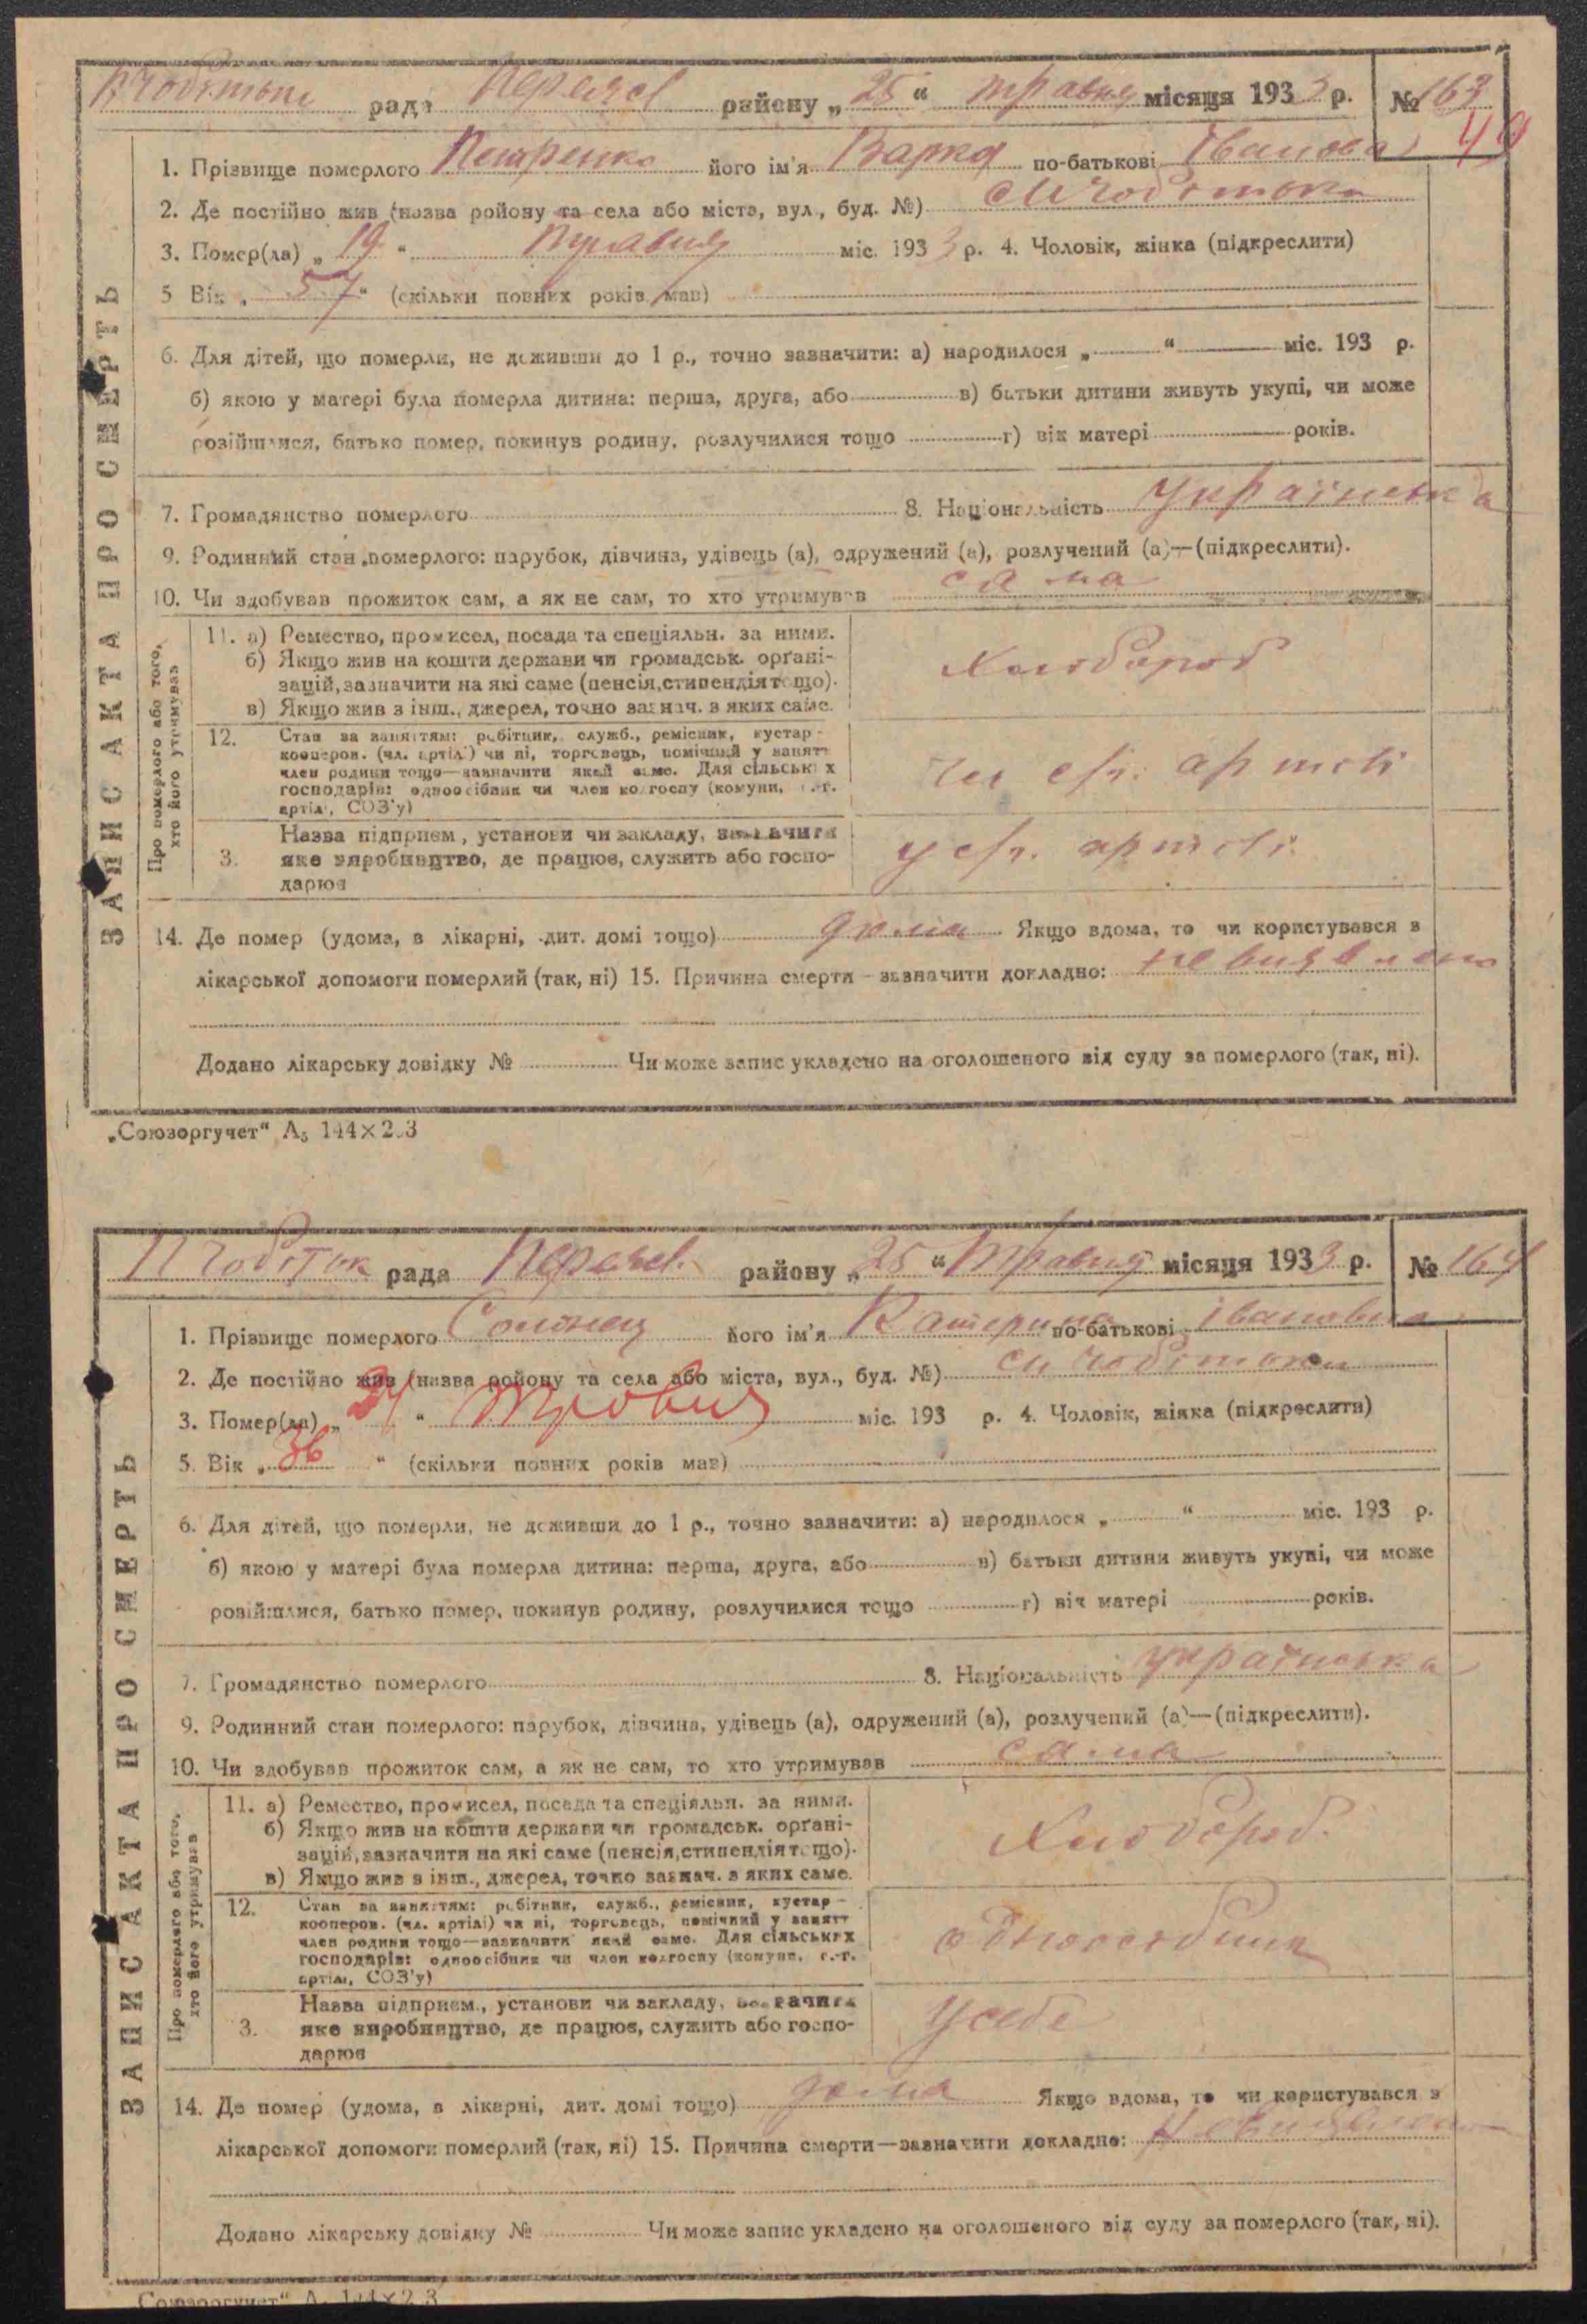 рада району „ 25 “ травня місяця 1933 р. № 163
49
1. Прізвище померлого Петренко його ім'я Варка по-батькові Іванова
2. Де постійно жив (назва ройону та села або міста, вул., буд. №)
3. Помер(ла) „ 19 “ травня міс. 1933 р. 4. Чоловік, жінка (підкреслити)
5 Вік „ 57 “ (скільки повних років мав)
6. Для дітей, що померли, не доживши до 1 р., точно зазначити: а) народилося „ “ міс. 193 р.
б) якою у матері була померла дитина: перша, друга, або в) батьки дитини живуть укупі, чи може
розійшлися, батько помер, покинув родину, розлучилися тощо г) вік матері років.
7. Громадянство померлого 8. Національність українська
9. Родинний стан померлого: парубок, дівчина, удівець (а), одружений (а), розлучений (а)—(підкреслити).
10. Чи здобував прожиток сам, а як не сам, то хто утримував сама
ЗАПИС АКТА ПРО СМЕРТЬ
Про померлого або того, хто його утримував
11. а) Ремество, промисел, посада та спеціяльн. за ними.
б) Якщо жив на кошти держави чи громадськ. орґані-
зацій, зазначити на які саме (пенсія, стипендія тощо).
в) Якщо жив з інш., джерел, точно зазнач. з яких саме.
Хлібороб
12. Стан за заняттям: робітник, служб., ремісник, кустар-
кооперов. (чл. артілі) чи ні, торговець, помічний у занятт
член родини тощо—зазначити який саме. Для сільських
господарів: одноосібник чи член колгоспу (комуни, с.-г.
артілі, СОЗ'у)
чл с/г. артілі
3. Назва підприєм., установи чи закладу, зазначити
яке виробництво, де працює, служить або госпо-
дарює
у с/г. артілі
14. Де помер (удома, в лікарні, дит. домі тощо) дома Якщо вдома, то чи користувався з
лікарської допомоги померлий (так, ні) 15. Причина смерти—зазначити докладно: не виявлено
Додано лікарську довідку № Чи може запис укладено на оголошеного від суду за померлого (так, ні).
„Союзоргучет“ А₅ 144×203
рада району „ 25 “ Травня місяця 1933 р. № 164
1. Прізвище померлого його ім'я Катерина по-батькові Івановна
2. Де постійно жив (назва ройону та села або міста, вул., буд. №)
3. Помер(ла) „ “ травня міс. 193 р. 4. Чоловік, жінка (підкреслити)
5. Вік „ 36 “ (скільки повних років мав)
6. Для дітей, що померли, не доживши до 1 р., точно зазначити: а) народилося „ “ міс. 193 р.
б) якою у матері була померла дитина: перша, друга, або в) батьки дитини живуть укупі, чи може
розійшлися, батько помер, покинув родину, розлучилися тощо г) вік матері років.
7. Громадянство померлого 8. Національність українська
9. Родинний стан померлого: парубок, дівчина, удівець (а), одружений (а), розлучений (а)—(підкреслити).
10. Чи здобував прожиток сам, а як не сам, то хто утримував сама
ЗАПИС АКТА ПРО СМЕРТЬ
Про померлого або того, хто його утримував
11. а) Ремество, промисел, посада та спеціяльн. за ними.
б) Якщо жив на кошти держави чи громадськ. орґані-
зацій, зазначити на які саме (пенсія, стипендія тощо).
в) Якщо жив з інш., джерел, точно зазнач. з яких саме.
Хлібороб.
12. Стан за заняттям: робітник, служб., ремісник, кустар-
кооперов. (чл. артілі) чи ні, торговець, помічний у занятт
член родини тощо—зазначити який саме. Для сільських
господарів: одноосібник чи член колгоспу (комуни, с.-г.
артілі, СОЗ'у)
одноосібник
3. Назва підприєм., установи чи закладу, зазначити
яке виробництво, де працює, служить або госпо-
дарює
У себе
14. Де помер (удома, в лікарні, дит. домі тощо) дома Якщо вдома, то чи користувався з
лікарської допомоги померлий (так, ні) 15. Причина смерти—зазначити докладно: не виявлено
Додано лікарську довідку № Чи може запис укладено на оголошеного від суду за померлого (так, ні).
„Союзоргучет“ А₅ 144×203